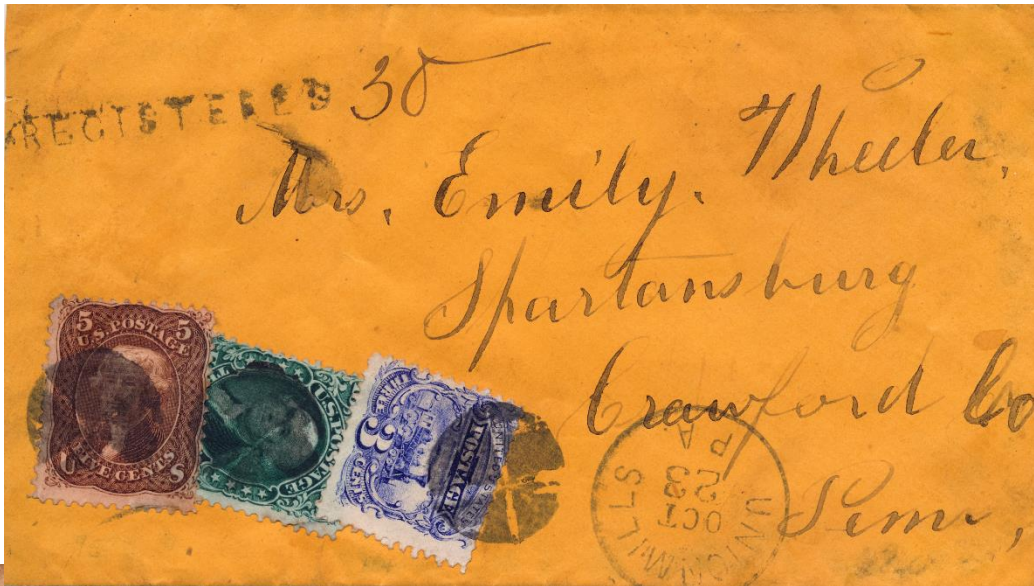 REGISTERED 38
Mrs. Emily. Wheeler,
Spartansburg
Crawford Co
Penn,
5 5
U.S. POSTAGE
FIVE CENTS
U S
U.S. POSTAGE
THREE
3
CENTS
UNITED STATES
POSTAGE
UNION MILLS
PA
OCT
23